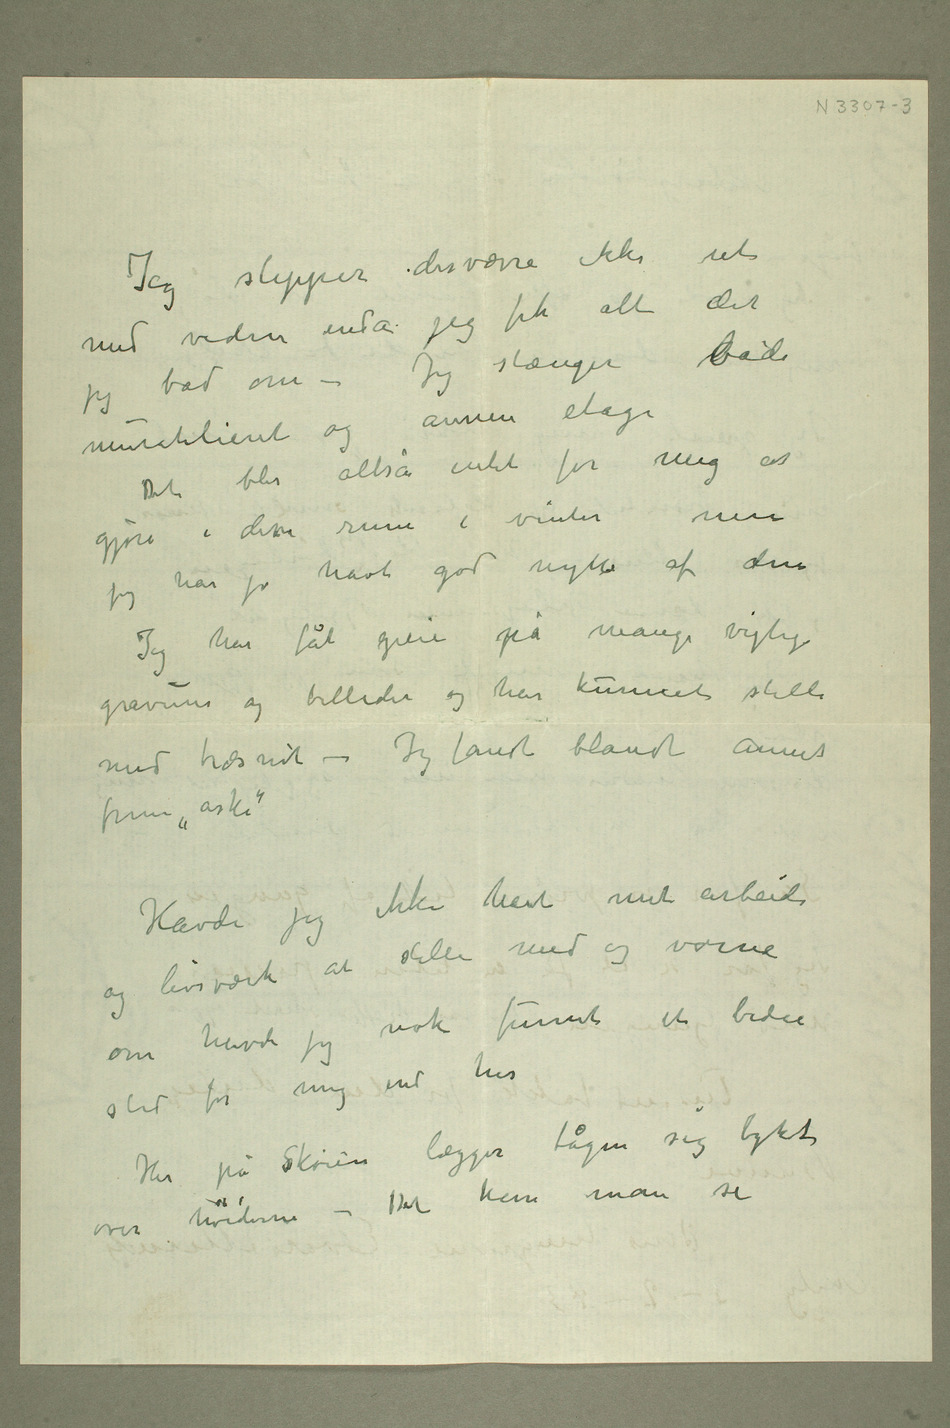 N 3307-3
Jeg slipper desværre ikke ut
med veden endå jeg fik alt det
jeg bad om – Jeg stænger både
muratelieret og annen etage
Det blir altså intet for mig at
gjøre i dem rum i vinter men
jeg har jo havt god nytte af dem
Jeg har fåt greie på mange vigtige
gravurer og billeder og har kunnet stelle
med træsnit – Jeg fandt blandt annet
frem „aske"
Havde jeg ikke havt mit arbeide
og livsværk at stelle med og værne
om havde jeg nok funnet et bedre
sted for mig end her
Her på Skøien lægger tågen sig tykt
over høiderne – Det kan man se